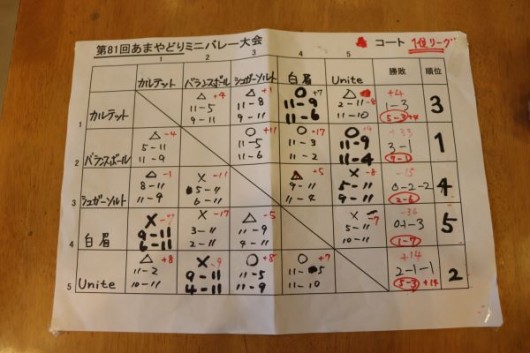 第81回あまやどりミニバレー大会
コート 1位リーグ
1 2 3 4 5
カルテット バランスボール シュガーソルト 白眉 Unite 勝敗 順位
1 カルテット
△ +4
11-5
9-11
△ +1
11-8
9-11
○ +7
11-9
11-6
△
2-11
11-10
+4
1-3
5-3 +4
3
2 バランスボール
△ -4
5-11
11-9
○ +11
11-5
11-6
○ +17
11-3
11-2
○ +9
11-9
11-4
+33
3-1
7-1
1
3 シュガーソルト
△ -1
8-11
11-9
× -11
5-11
6-11
△ +5
9-11
11-4
× -8
5-11
9-11
-15
0-2-2
2-6
4
4 白眉
× -7
9-11
6-11
× -17
3-11
2-11
△ -5
11-9
4-11
× -7
5-11
10-11
-36
0-1-3
1-7
5
5 Unite
△ +8
11-2
10-11
× -9
9-11
4-11
○ +8
11-5
11-9
○ +7
11-5
11-10
+14
2-1-1
5-3 +14
2